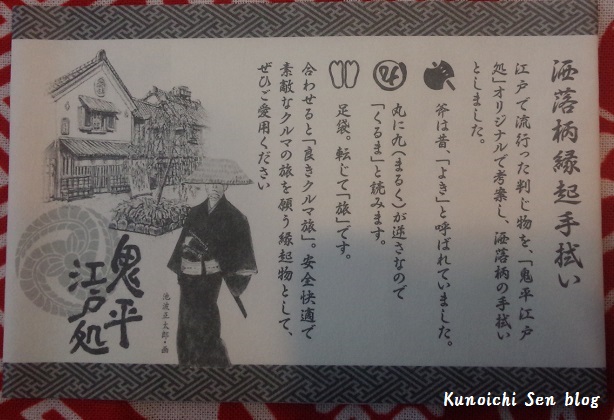 洒落柄縁起手拭い
江戸で流行った判じ物を、「鬼平江戸
処」オリジナルで考案し、洒落柄の手拭い
としました。
斧は昔、「よき」と呼ばれていました。
丸に九(まるく)が逆さなので
「くるま」と読みます。
足袋。転じて「旅」です。
合わせると「良きクルマ旅」。安全快適で
素敵なクルマの旅を願う縁起物として、
ぜひご愛用ください
池波正太郎・画
鬼平
江戸処
Kunoichi Sen blog